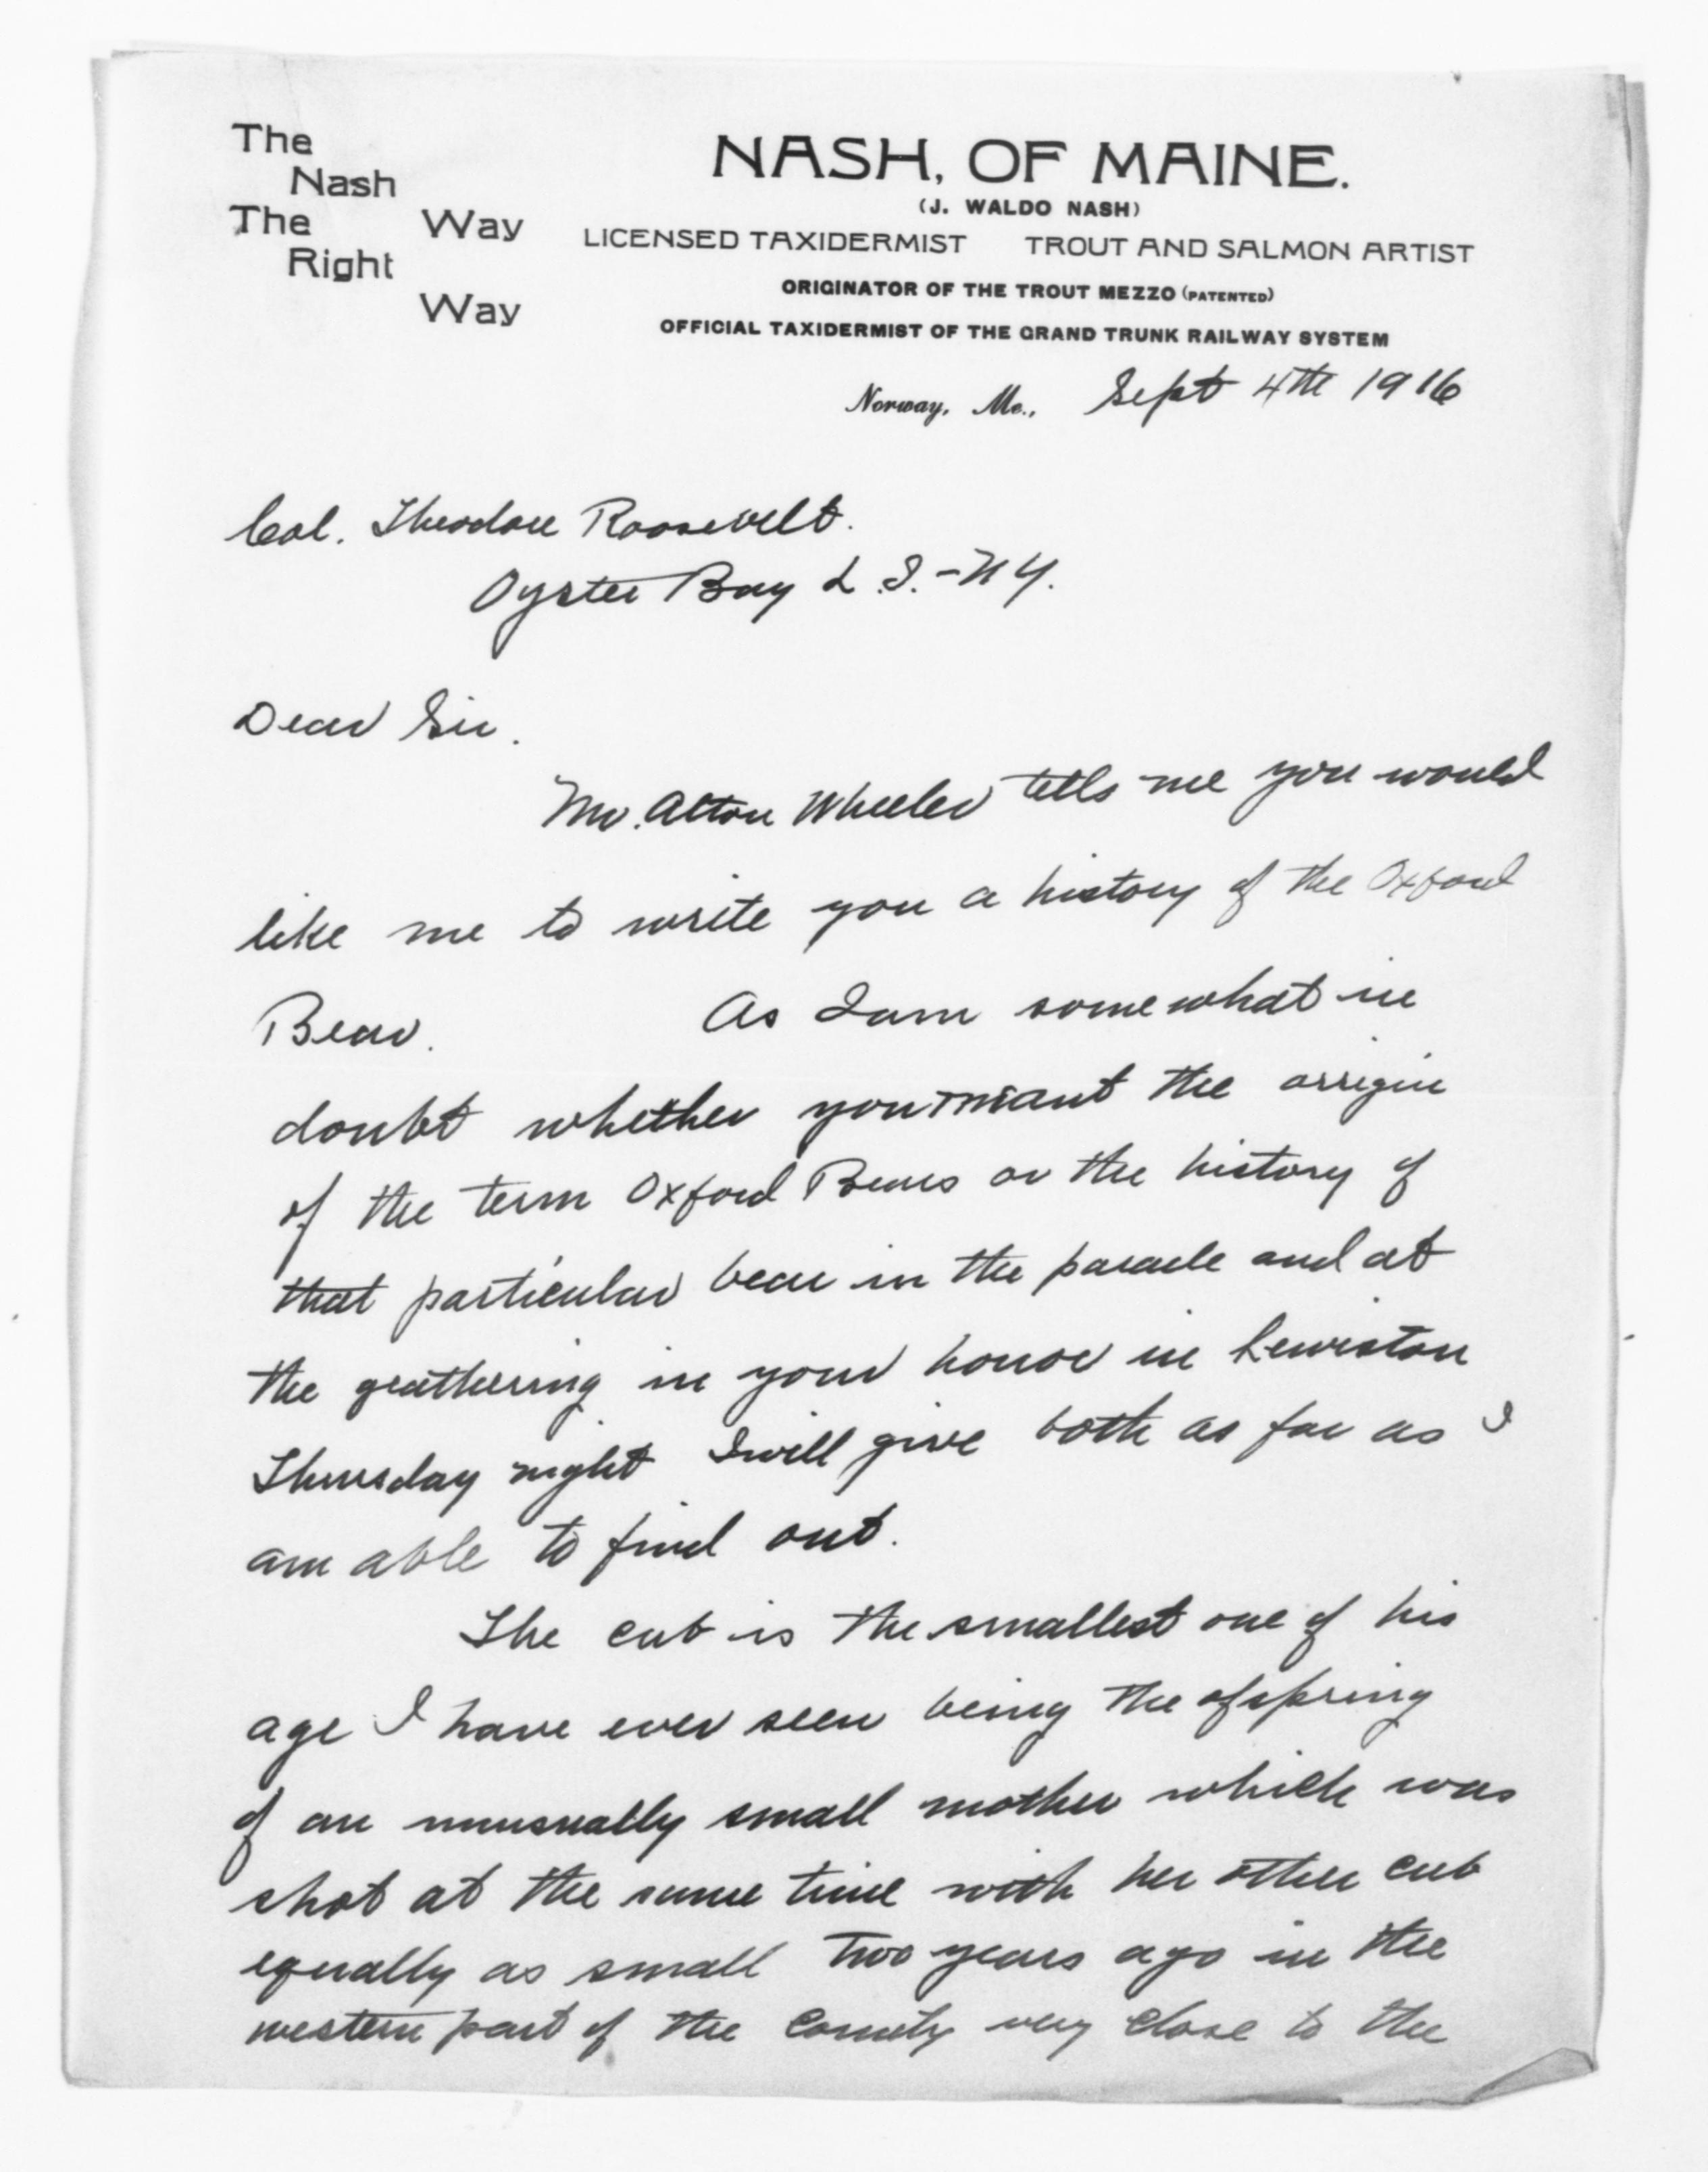 The
Nash
The Way
Right
Way
NASH, OF MAINE.
(J. WALDO NASH)
LICENSED TAXIDERMIST TROUT AND SALMON ARTIST
ORIGINATOR OF THE TROUT MEZZO (PATENTED)
OFFICIAL TAXIDERMIST OF THE GRAND TRUNK RAILWAY SYSTEM
Norway, Me., Sept 4th 1916
Col. Theodore Roosevelt.
Oyster Bay L.I. - N Y.
Dear Sir.
Mr. Alton Wheeler tells me you would
like me to write you a history of the Oxford
Bear. As I am somewhat in
doubt whether you meant the orrigin
of the term Oxford Bears or the history of
that particular bear in the parade and at
the geathering in your honor in Lewiston
Thursday night I will give both as far as I
am able to find out.
The cub is the smallest one of his
age I have ever seen being the ofspring
of an unusually small mother which was
shot at the same time with her other cub
equally as small two years ago in the
western part of the County very close to the